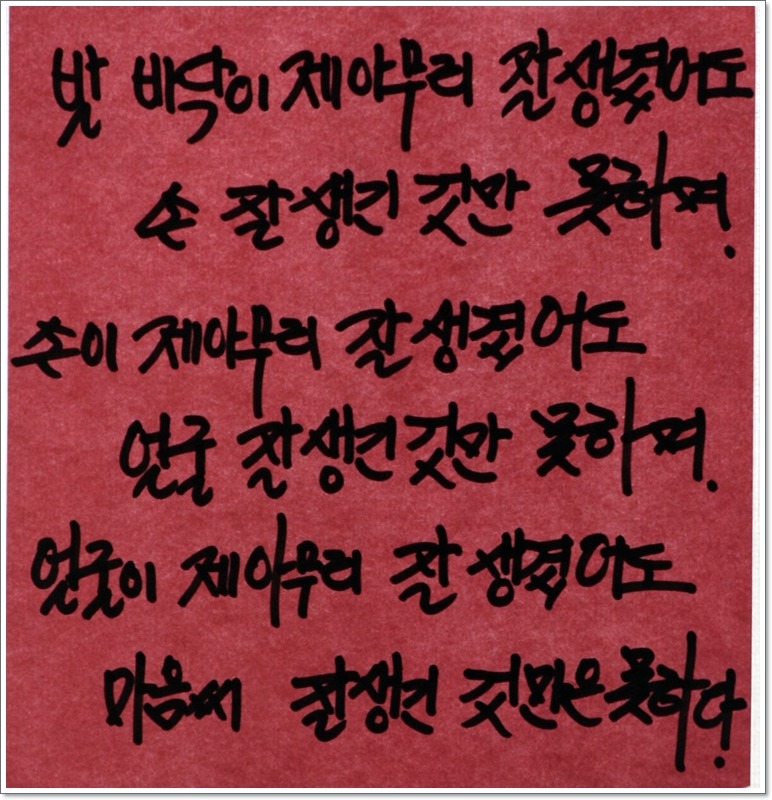 발 바닥이 제아무리 잘 생겼어도
손 잘 생긴 것만 못하며.
손이 제아무리 잘 생겼어도
얼굴 잘 생긴 것만 못하며.
얼굴이 제아무리 잘 생겼어도
마음씨 잘생긴 것만은 못하다.